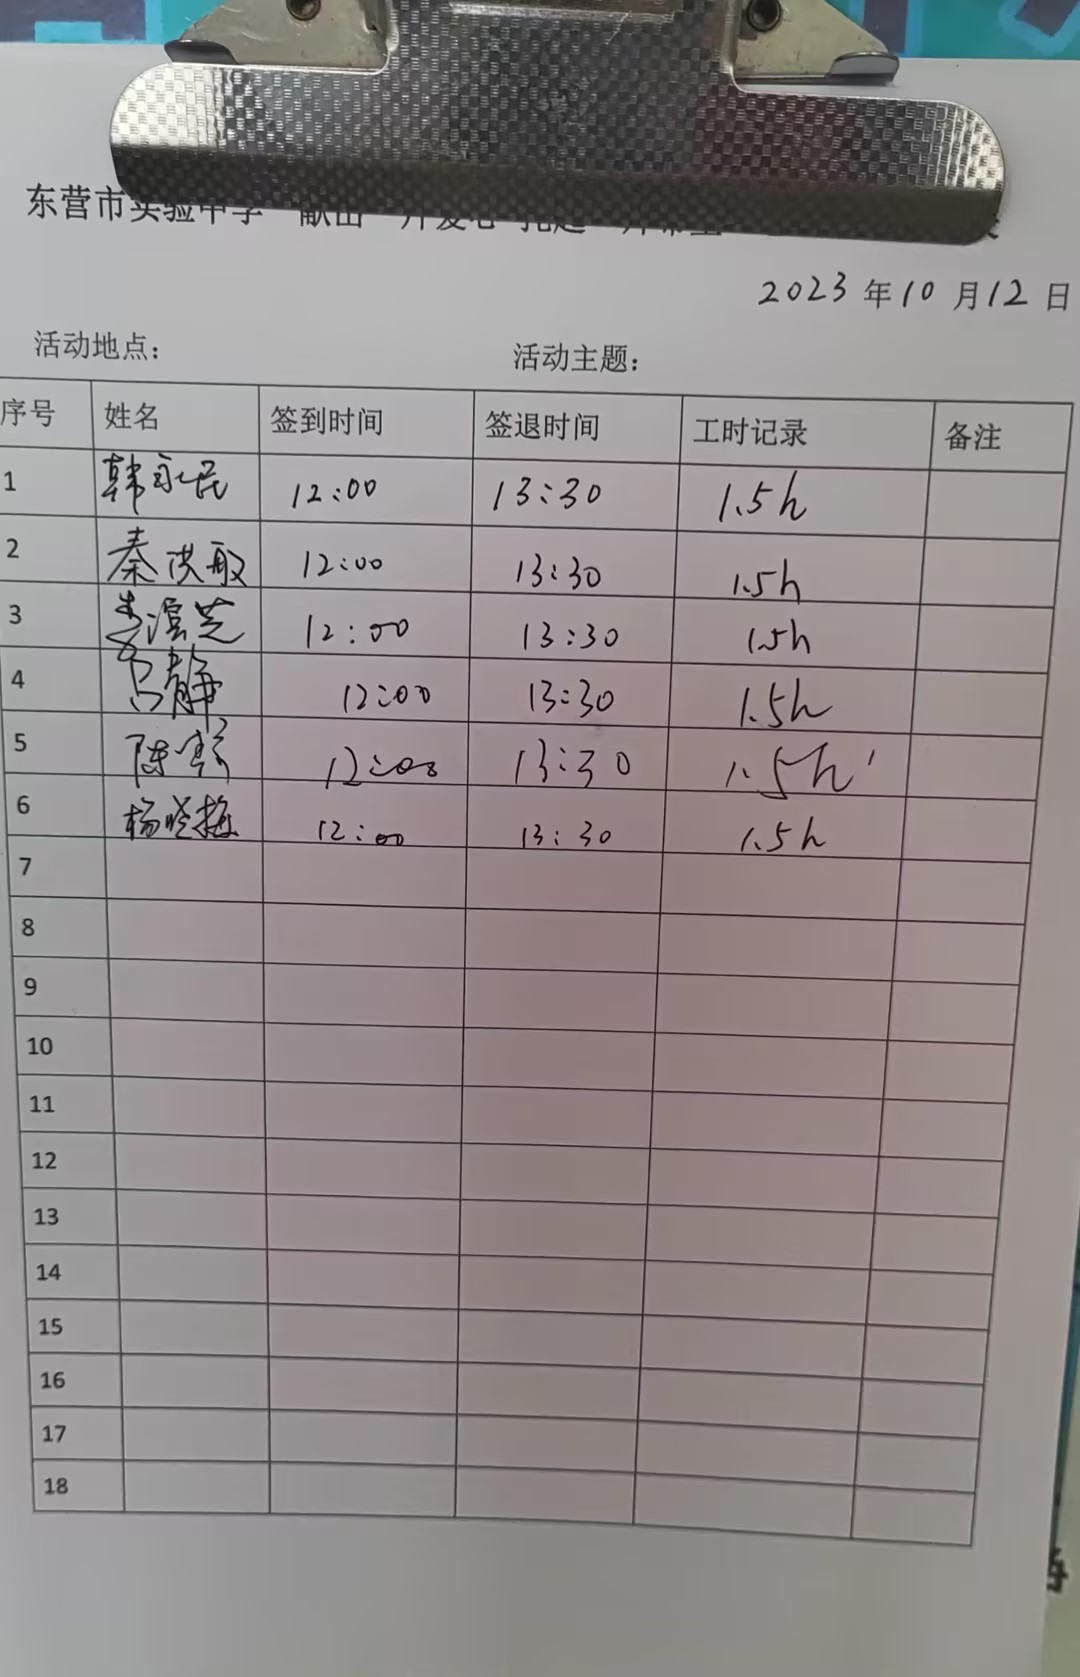 东营市实验中学 献出一片爱心 托起一片希望
2023 年 10 月 12 日
活动地点： 活动主题：
序号 姓名 签到时间 签退时间 工时记录 备注
1 韩永民 12:00 13:30 1.5h
2 秦洪敏 12:00 13:30 1.5h
3 12:00 13:30 1.5h
4 吕静 12:00 13:30 1.5h
5 陈 12:00 13:30 1.5h
6 杨晓梅 12:00 13:30 1.5h
7
8
9
10
11
12
13
14
15
16
17
18